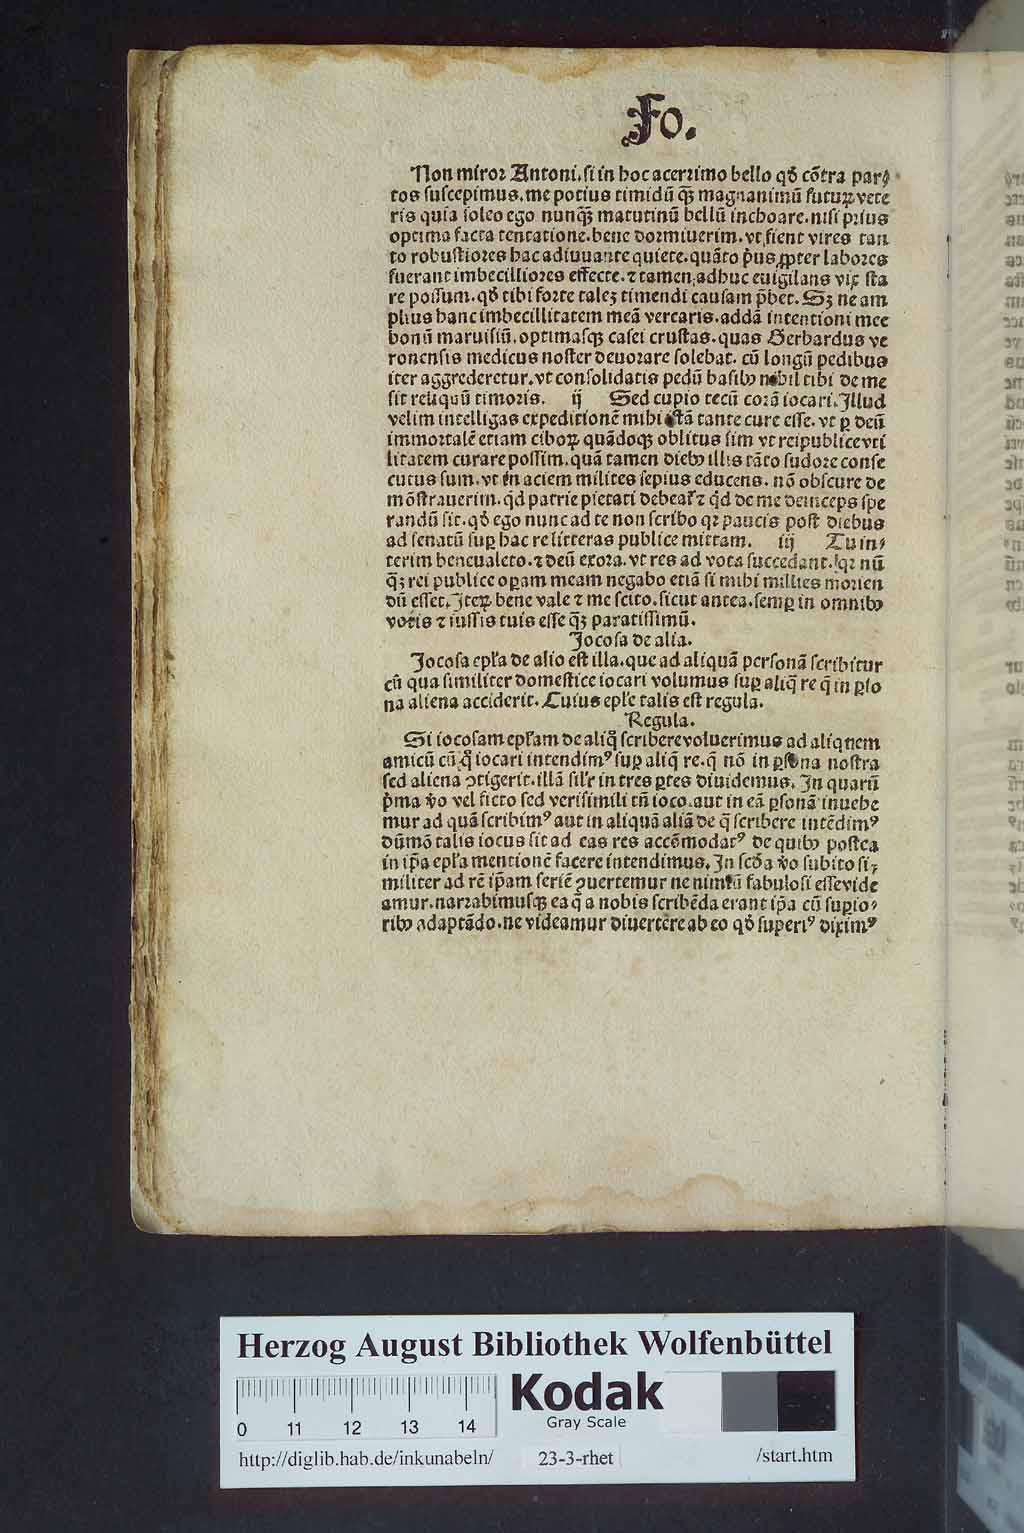 Fo.
Non miror Antoni. si in hoc acerrimo bello qđ cōtra par⸗
tos suscepimus. me potius timidū qꝫ magnanimū futuꝝ vere
ris quia soleo ego nunqꝫ matutinū bellū inchoare. nisi prius
optima facta tentatione. bene dormiuerim. vt fient vires tan
to robustiores hac adiuuante quiete. quāto p̄us ꝓpter labores
fuerant imbecilliores effecte. ⁊ tamen adhuc euigilans vix sta
re possum. qđ tibi forte talēꝫ timendi causam p̄bet. Sꝫ ne am
plius hanc imbecillitatem meā vercaris. addā intentioni mee
bonū maruisiū. optimasqꝫ casei crustas. quas Gerhardus ve
ronensis medicus noster deuorare solebat. cū longū pedibus
iter aggrederetur. vt consolidatis pedū basibꝰ nihil tibi de me
sit reliquū timoris. ij Sed cupio tecū corā iocari. Illud
velim intelligas expeditionē mihi istā tante cure esse. vt ꝑ deū
immortalē etiam ciboꝝ quādoqꝫ oblitus sim vt reipublice vti
litatem curare possim. quā tamen diebꝰ illis tāto sudore conse
cutus sum. vt in aciem milites sepius educens. nō obscure de
mōstrauerim. qd̄ patrie pietati debeat̄ ⁊ qd̄ de me deinceps spe
randū sit. qđ ego nunc ad te non scribo qꝛ paucis post diebus
ad senatū suꝑ hac re litteras publice mittam. iij Tu in⸗
terim beneualeto. ⁊ deū exora. vt res ad vota succedant. qꝛ nū
q̄ꝫ rei publice oꝑam meam negabo etiā si mihi millies morien
dū esset. Iteꝝ bene vale ⁊ me scito. sicut antea. semꝑ in omnibꝰ
votis ⁊ iussis tuis esse q̄ꝫ paratissimū.
Jocosa de alia.
Jocosa epl̄a de alio est illa. que ad aliquā personā scribitur
cū qua similiter domestice iocari volumus suꝑ aliq̄ re q̄ in ꝑso
na aliena acciderit. Cuius epl̄e talis est regula.
Regula.
Si iocosam epl̄am de aliq̊ scribere voluerimus ad aliquem
amicū cū q̊ iocari intendimꝰ suꝑ aliq̄ re. q̄ nō in ꝑsona nostra
sed aliena ꝯtigerit. illā sil̄r in tres ꝑtes diuidemus. In quarū
p̄ma v̊o vel ficto sed verisimili tn̄ ioco. aut in eā ꝑsonā inuehe
mur ad quā scribimꝰ aut in aliquā aliā de q̄ scribere intēdimꝰ
dūmō talis iocus sit ad eas res accōmodatꝰ de quibꝰ postea
in ip̄a epl̄a mentionē facere intendimus. In scđa v̊o subito si⸗
militer ad rē ip̄am seriē ꝯuertemur ne nimiū fabulosi esse vide
amur. narrabimusqꝫ ea q̄ a nobis scribēda erant ip̄a cū suꝑio⸗
ribꝰ adaptādo. ne videamur diuertere ab eo qđ superiꝰ diximꝰ
Herzog August Bibliothek Wolfenbüttel
0 11 12 13 14
Kodak
Gray Scale
http://diglib.hab.de/inkunabeln/ 23-3-rhet /start.htm